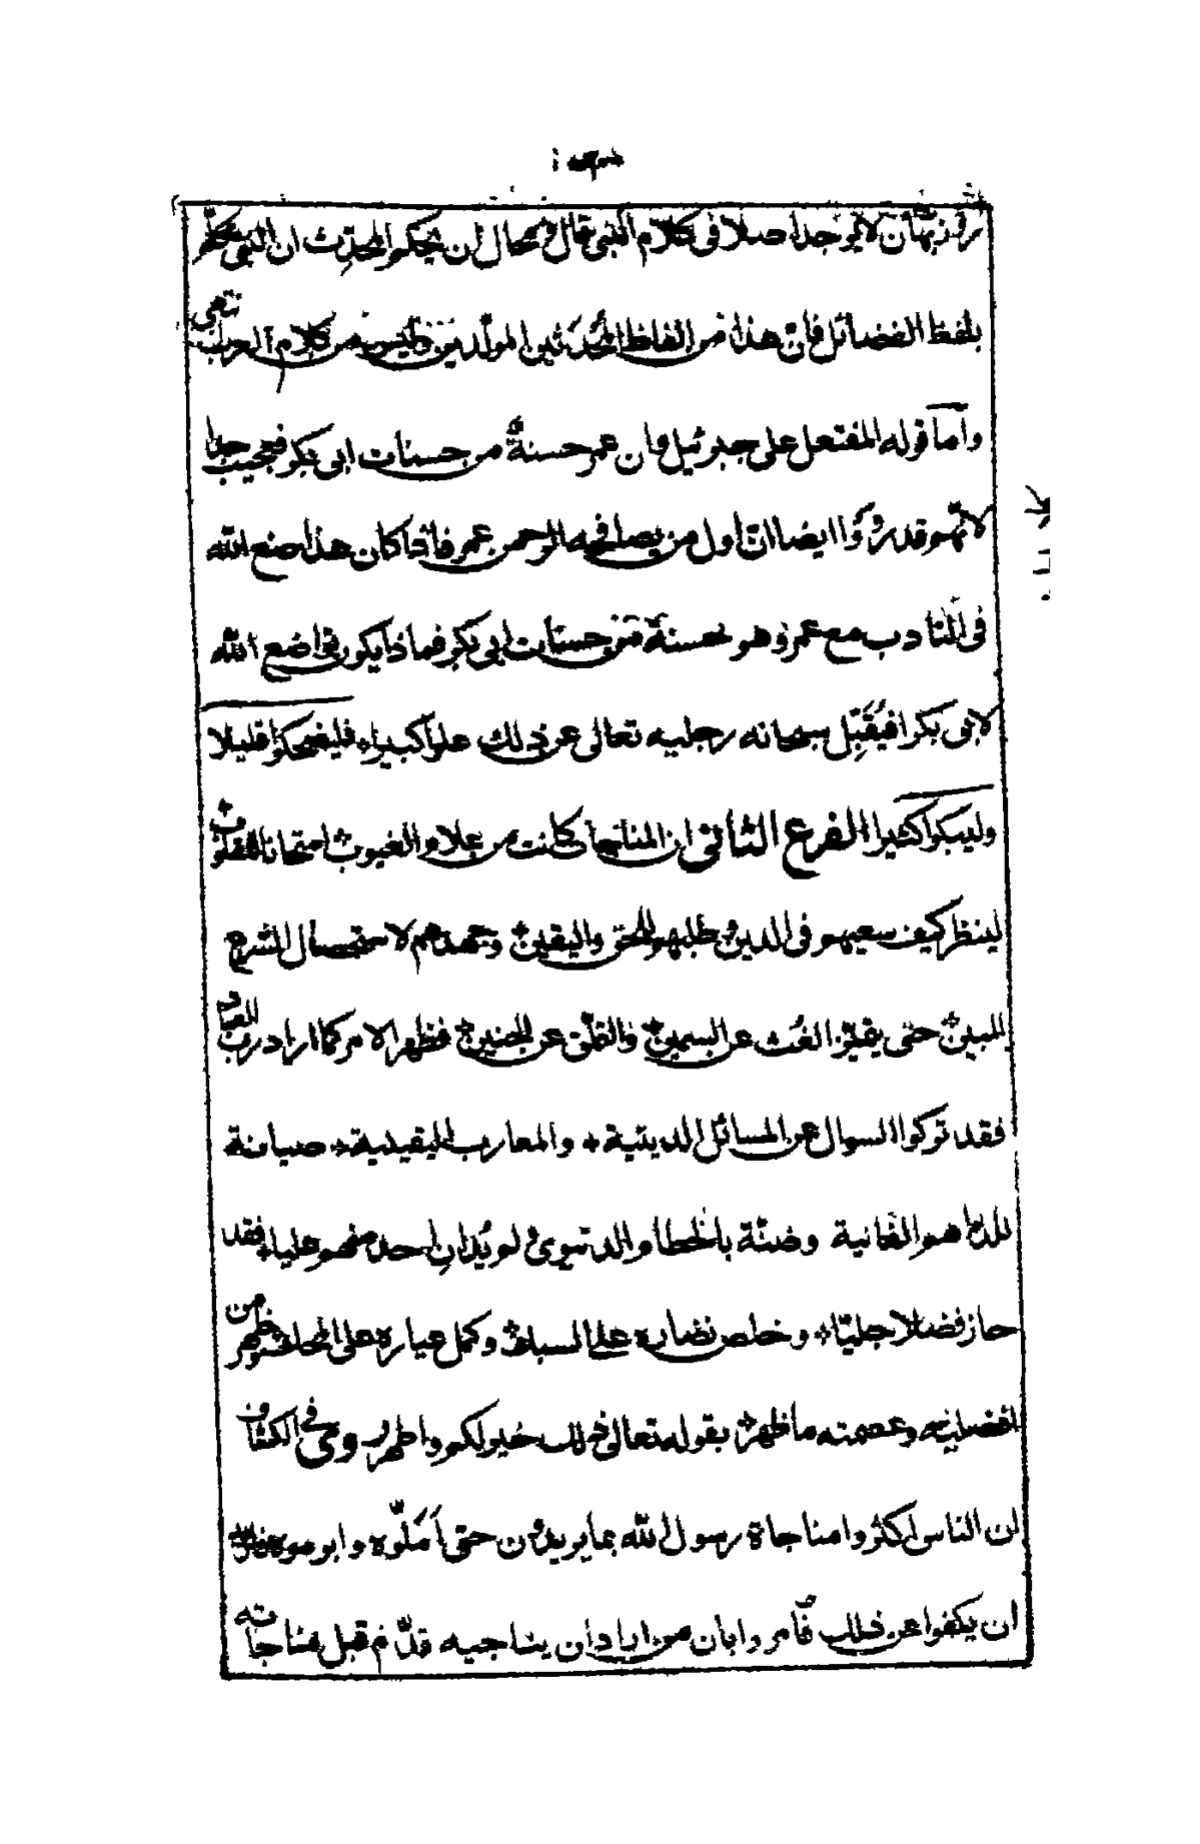 روزبهان لا يوجد اصلا فى كلام النبى قال و محال ان يحكم المحدث ان النبى تكلم
بلفظ الفضائل فانّ هذا من الفاظ المُحدَثين المولّدين وليس من كلام العرب انتهى
وأما قوله المفتعل على جبرئيل وان عمر حسنةٌ من حسنات ابى بكر فعجيب جدا
لانهم قد رَوَوا ايضا انّ اول من يصافحه الرحمن عمر فاذا كان هذا صنع الله
فى التادب مع عمر وهو حسنة من حسنات ابى بكر فماذا يكون فى صنع الله
لابى بكر افيُقَبِّل سبحانه رجليه تعالى عن ذلك علوا كبيرا فليضحكوا قليلا
وليبكوا كثيرا الفرع الثانى ان المناجاة كانت من علام الغيوب امتحانا للقلوب
لينظر كيف سعيهم فى الدين و طلبهم للحق واليقين وجهدهم لاستحصال الشرع
المبين حتى يتميّز الغث عن السمين والقلّى عن الحنين فظهر الامر كما اراد رب العباد
فقد تركوا السوال عن المسائل الدينية والمعارب اليقينية صيانة
للدراهم الفانية وضنّة بالحطام الدنيوى لم يُدانِ احد منهم عليا فقد
حاز فضلا جليّا و خلص نضاره على السباك وكمل عياره على المحك فظهر من
افضليته وعصمته ما ظهر بقوله تعالى ذلك خير لكم واطهر وحى فى الكشاف
ان الناس اكثروا مناجاة رسول الله بما يريدون حتى اَمَلّوه وابرموه فاريد
ان يكفوا عن ذلك فأمروا بان من اراد ان يناجيه قدّم قبل مناجاته